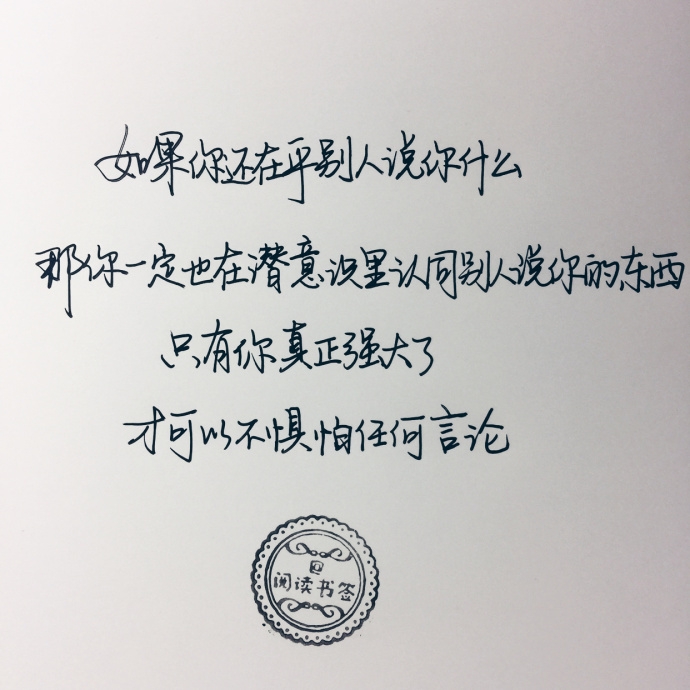 如果你还在乎别人说你什么
那你一定也在潜意识里认同别人说你的东西
只有你真正强大了
才可以不惧怕任何言论
@
阅读书签